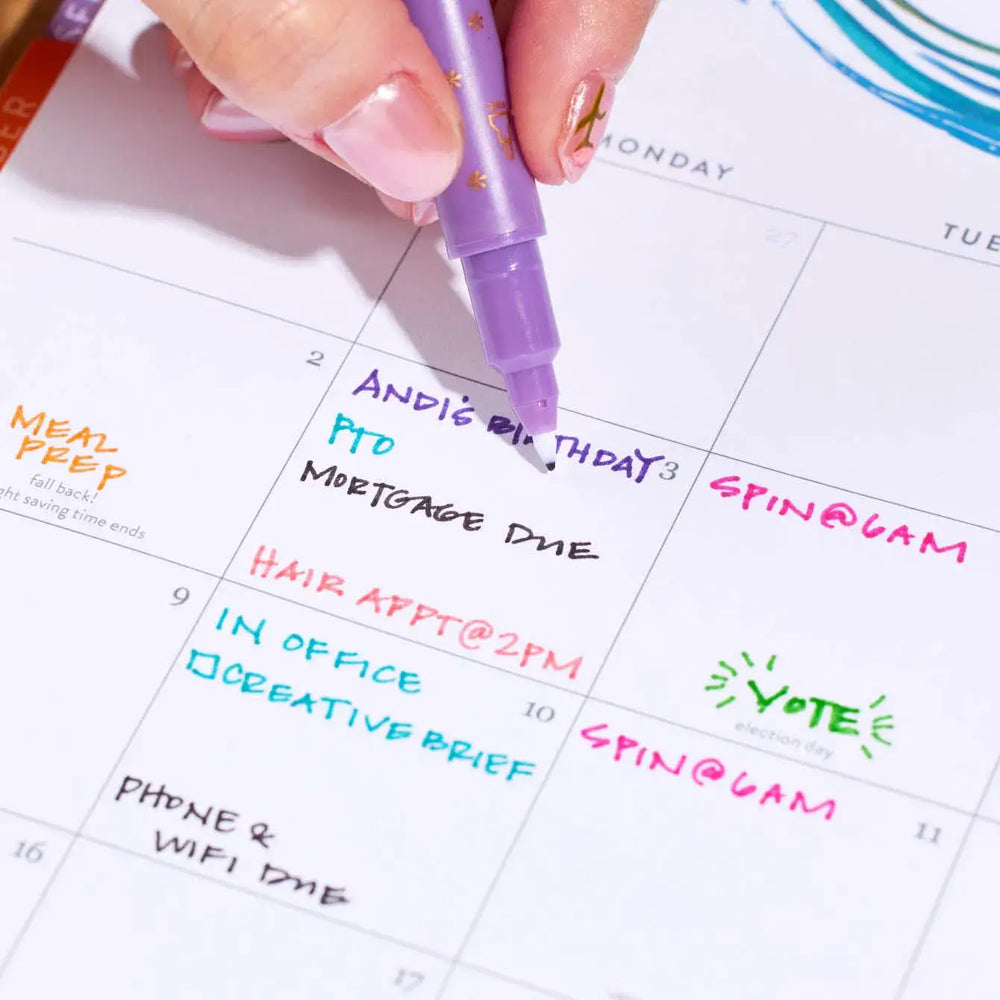 MONDAY
TUE
27
2
MEAL
PREP
fall back!
ght saving time ends
ANDI'S BIRTHDAY
3
PTO
MORTGAGE DUE
HAIR APPT@2PM
SPIN@6AM
VOTE
election day
9
IN OFFICE
CREATIVE BRIEF
10
PHONE &
WIFI DUE
SPIN@6AM
11
16
17